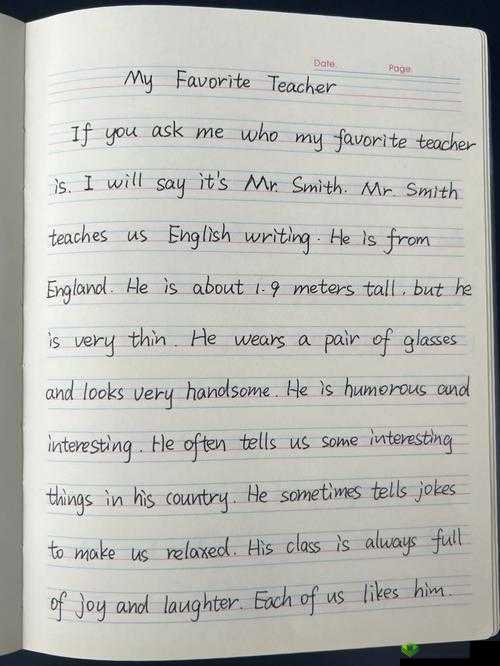 Date.
Page.
My Favorite Teacher
If you ask me who my favorite teacher
is. I will say it's Mr. Smith. Mr. Smith
teaches us English writing. He is from
England. He is about 1.9 meters tall, but he
is very thin. He wears a pair of glasses
and looks very handsome. He is humorous and
interesting. He often tells us some interesting
things in his country. He sometimes tells jokes
to make us relaxed. His class is always full
of joy and laughter. Each of us likes him.